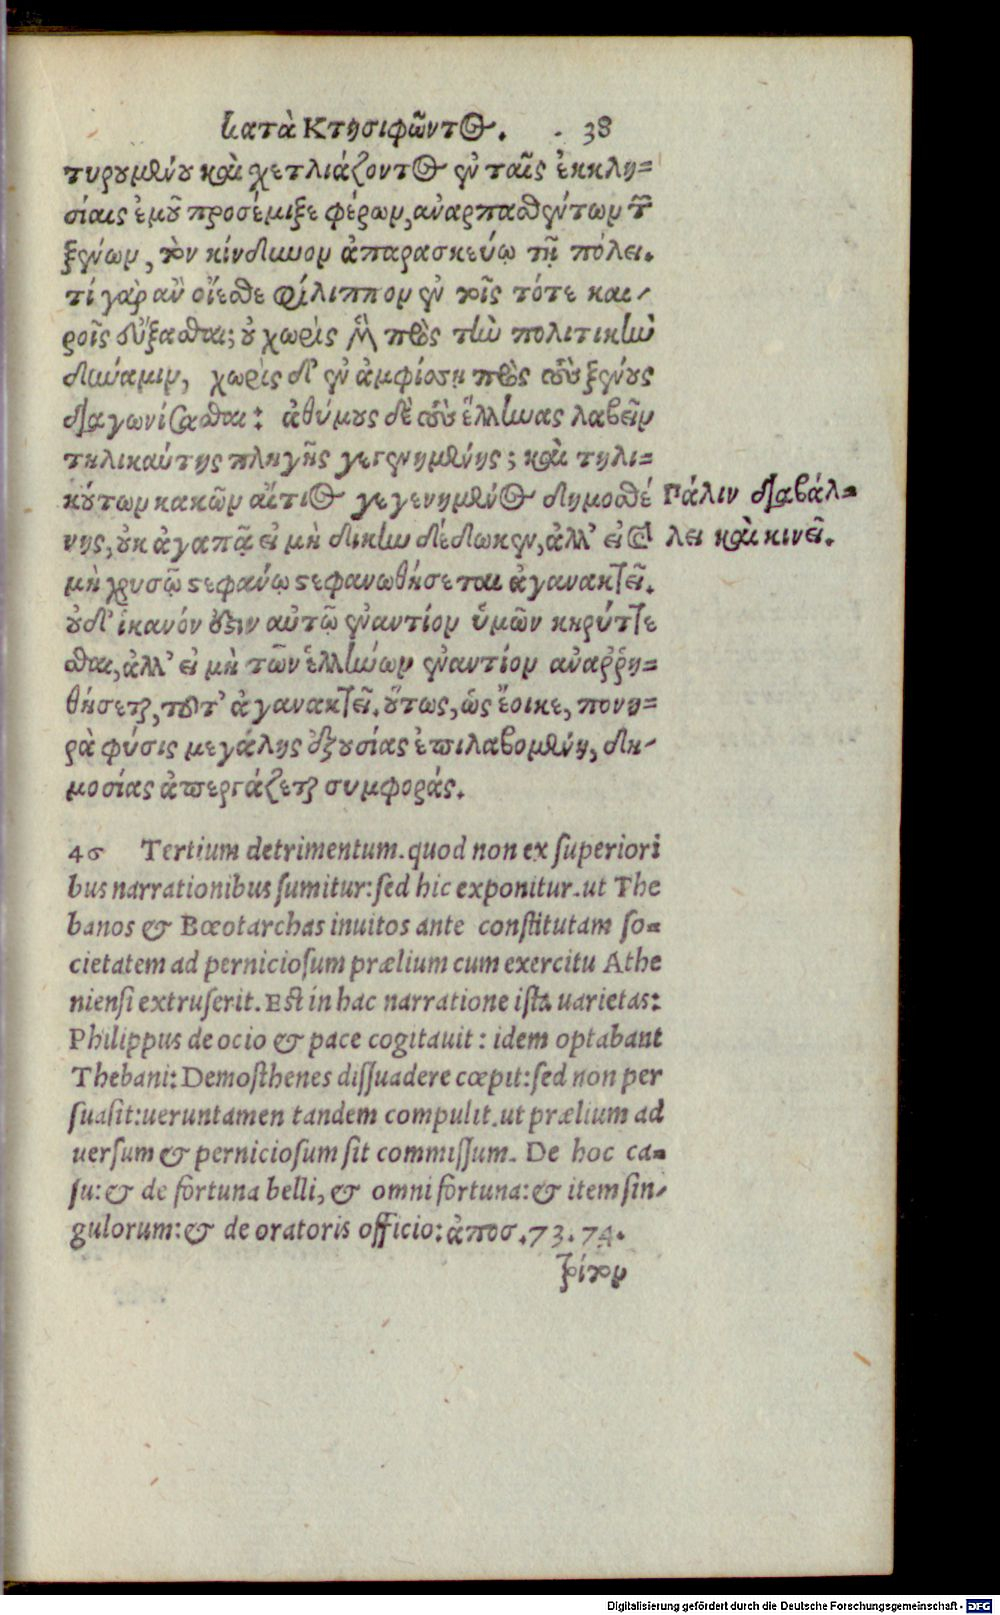 κατὰ Κτησιφῶντος. 38
τυρουμένου καὶ σχετλιάζοντος ἐν ταῖς ἐκκλη=
σίαις ἐμοῦ προσέμιξε φέρων, ἀναρπασθέντων τῶν
ξένων, τὸν κίνδυνον ἀπαρασκεύῳ τῇ πόλει.
τί γὰρ ἂν οἴεσθε Φίλιππον ἐν τοῖς τότε και-
ροῖς εὔξασθαι; οὐ χωρὶς μὲν πρὸς τὴν πολιτικὴν
δύναμιν, χωρὶς δ' ἐν ἀμφίσσῃ πρὸς τοὺς ξένους
διαγωνίσασθαι: ἀθύμους δὲ τοὺς ἕλληνας λαβεῖν
τηλικαύτης πληγῆς γεγενημένης; καὶ τηλι=
κούτων κακῶν αἴτιος γεγενημένος δημοσθέ
νης, οὐκ ἀγαπᾷ εἰ μὴ δίκην δέδωκεν, ἀλλ' εἰ
μὴ χρυσῷ στεφάνῳ στεφανωθήσεται ἀγανακτεῖ.
οὐδ' ἱκανόν ἐστιν αὐτῷ ἐναντίον ὑμῶν κηρύττε
σθαι, ἀλλ' εἰ μὴ τῶν ἑλλήνων ἐναντίον ἀναρρη=
θήσεται, τοῦτ' ἀγανακτεῖ. οὕτως, ὡς ἔοικε, πονη=
ρὰ φύσις μεγάλης ἐξουσίας ἐπιλαβομένη, δη-
μοσίας ἀπεργάζεται συμφοράς.
Πάλιν διαβάλ=
λει καὶ κινεῖ.
46 Tertium detrimentum.quod non ex superiori
bus narrationibus sumitur:sed hic exponitur.ut The
banos & Bœotarchas inuitos ante constitutam so=
cietatem ad perniciosum prælium cum exercitu Athe
niensi extruserit. Est in hac narratione ista uarietas:
Philippus de ocio & pace cogitauit: idem optabant
Thebani: Demosthenes dissuadere cœpit:sed non per
suasit:ueruntamen tandem compulit.ut prælium ad
uersum & perniciosum sit commissum. De hoc ca=
su:& de fortuna belli, & omni fortuna:& item sin-
gulorum:& de oratoris officio: ἀποσ.73.74.
τρίτον
Digitalisierung gefördert durch die Deutsche Forschungsgemeinschaft - DFG